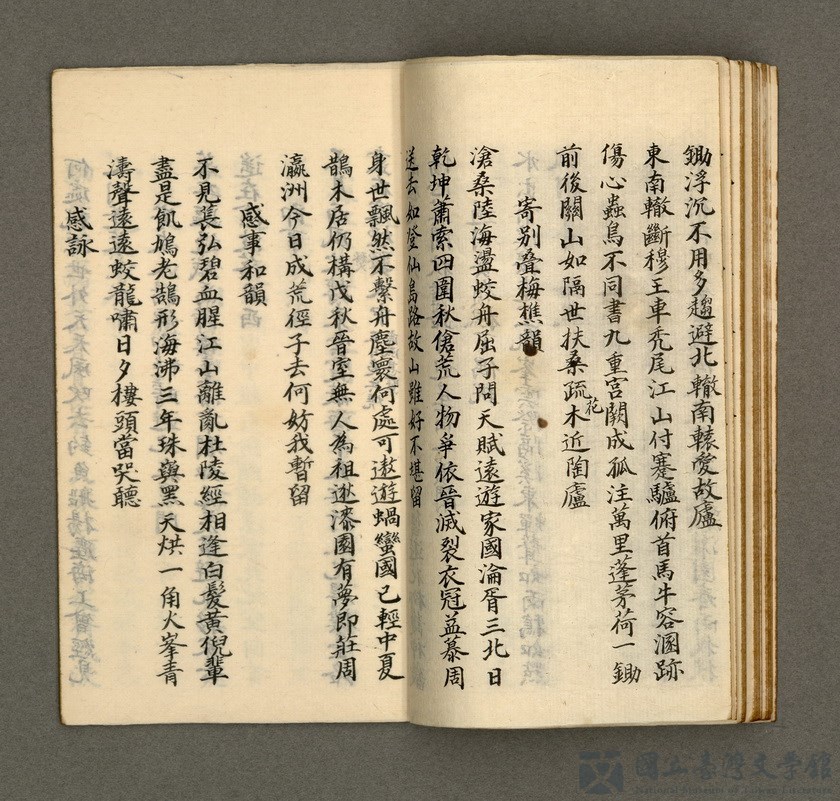 鋤浮沉不用多趨避北轍南轅愛故廬
東南轍斷穆王車禿尾江山付蹇驢俯首馬牛容溷跡
傷心蟲鳥不同書九重宮闕成孤注萬里蓬茅荷一鋤
前後關山如隔世扶桑疏木近陶廬
花
寄別疊梅樵韻
滄桑陸海盪蛟舟屈子問天賦遠遊家國淪胥三北日
乾坤蕭索四圍秋傖荒人物爭依晉滅裂衣冠益慕周
送去如登仙島路故山雖好不堪留
身世飄然不繫舟塵寰何處可遨遊蝸蠻國已輕中夏
鵲木居仍構戊秋晉室無人為祖逖漆園有夢即莊周
瀛洲今日成荒徑子去何妨我暫留
感事和韻
不見萇弘碧血腥江山離亂杜陵經相逢白髮黃倪輩
盡是飢鳩老鵠形海沸三年珠與黑天烘一角火峯青
濤聲遠遠蛟龍嘯日夕樓頭當哭聽
感詠
國立臺灣文學館
National Museum of Taiwan Literature